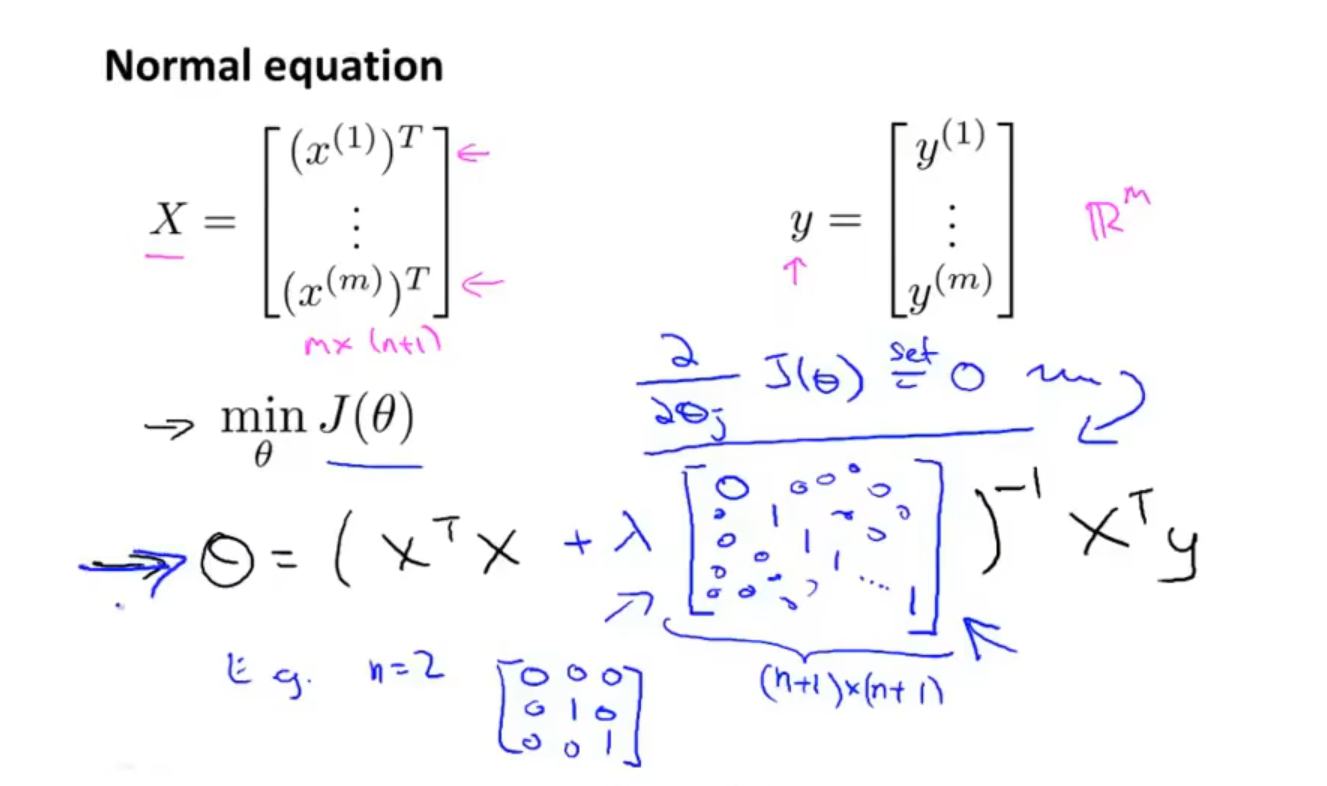 Normal equation
X = [ (x^(1))^T ⋮ (x^(m))^T ] ← ←
m×(n+1)
y = [ y^(1) ⋮ y^(m) ] ℝ^m
↑
∂/∂θ_j J(θ) set = 0
→ min_θ J(θ)
→ θ = ( X^T X + λ [ 0 1 1 1 ⋱ 1 ] )^-1 X^T y
(n+1)×(n+1)
E.g. n=2
[ 0 0 0
0 1 0
0 0 1 ]